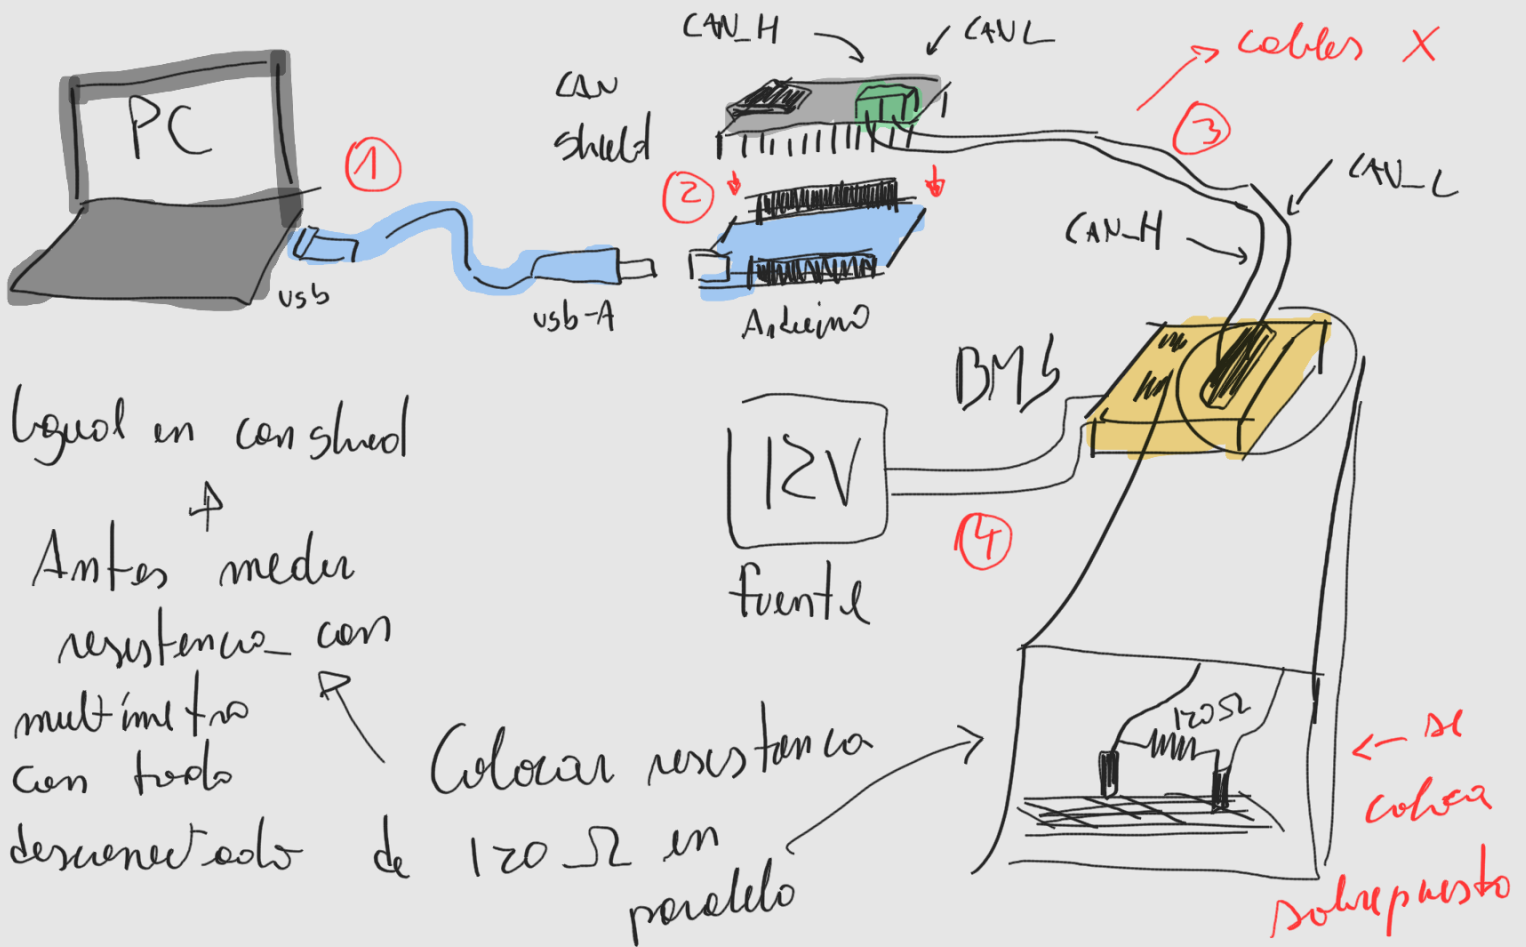 PC
1
usb
usb-A
CAN_H
CAN L
CAN
shield
2
Arduino
cables X
3
CAN_L
CAN_H
BMS
12V
4
fuente
Igual en can shied
Antes medir
resistencia con
multímetro
con todo
desconectado
Colocar resistencia
de 120 Ω en
paralelo
120Ω
← se
coloca
sobrepuesto